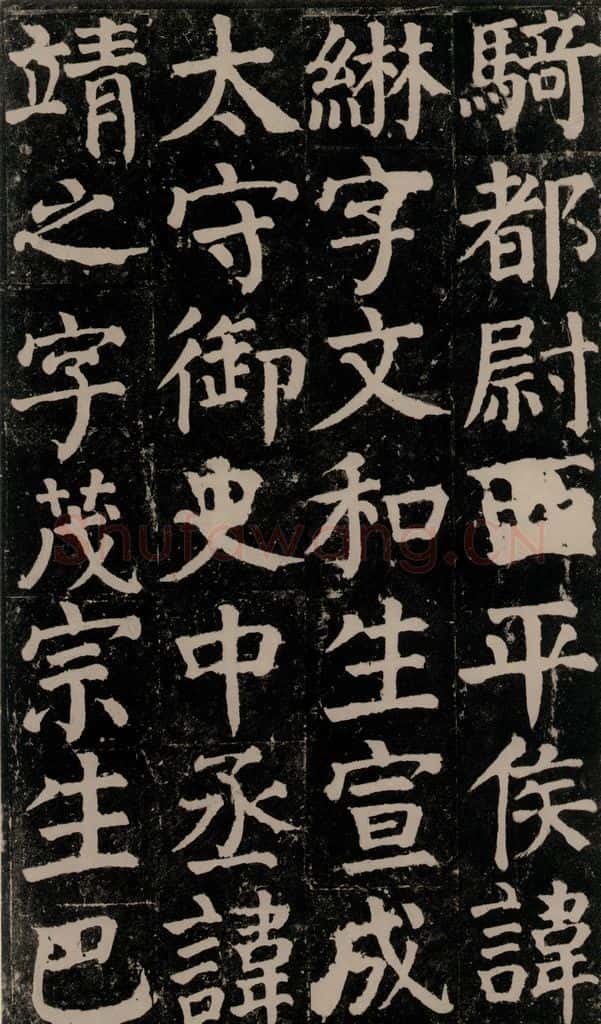 騎都尉西平侯諱
綝字文和生宣成
太守御史中丞諱
靖之字茂宗生巴
shufawang.CN